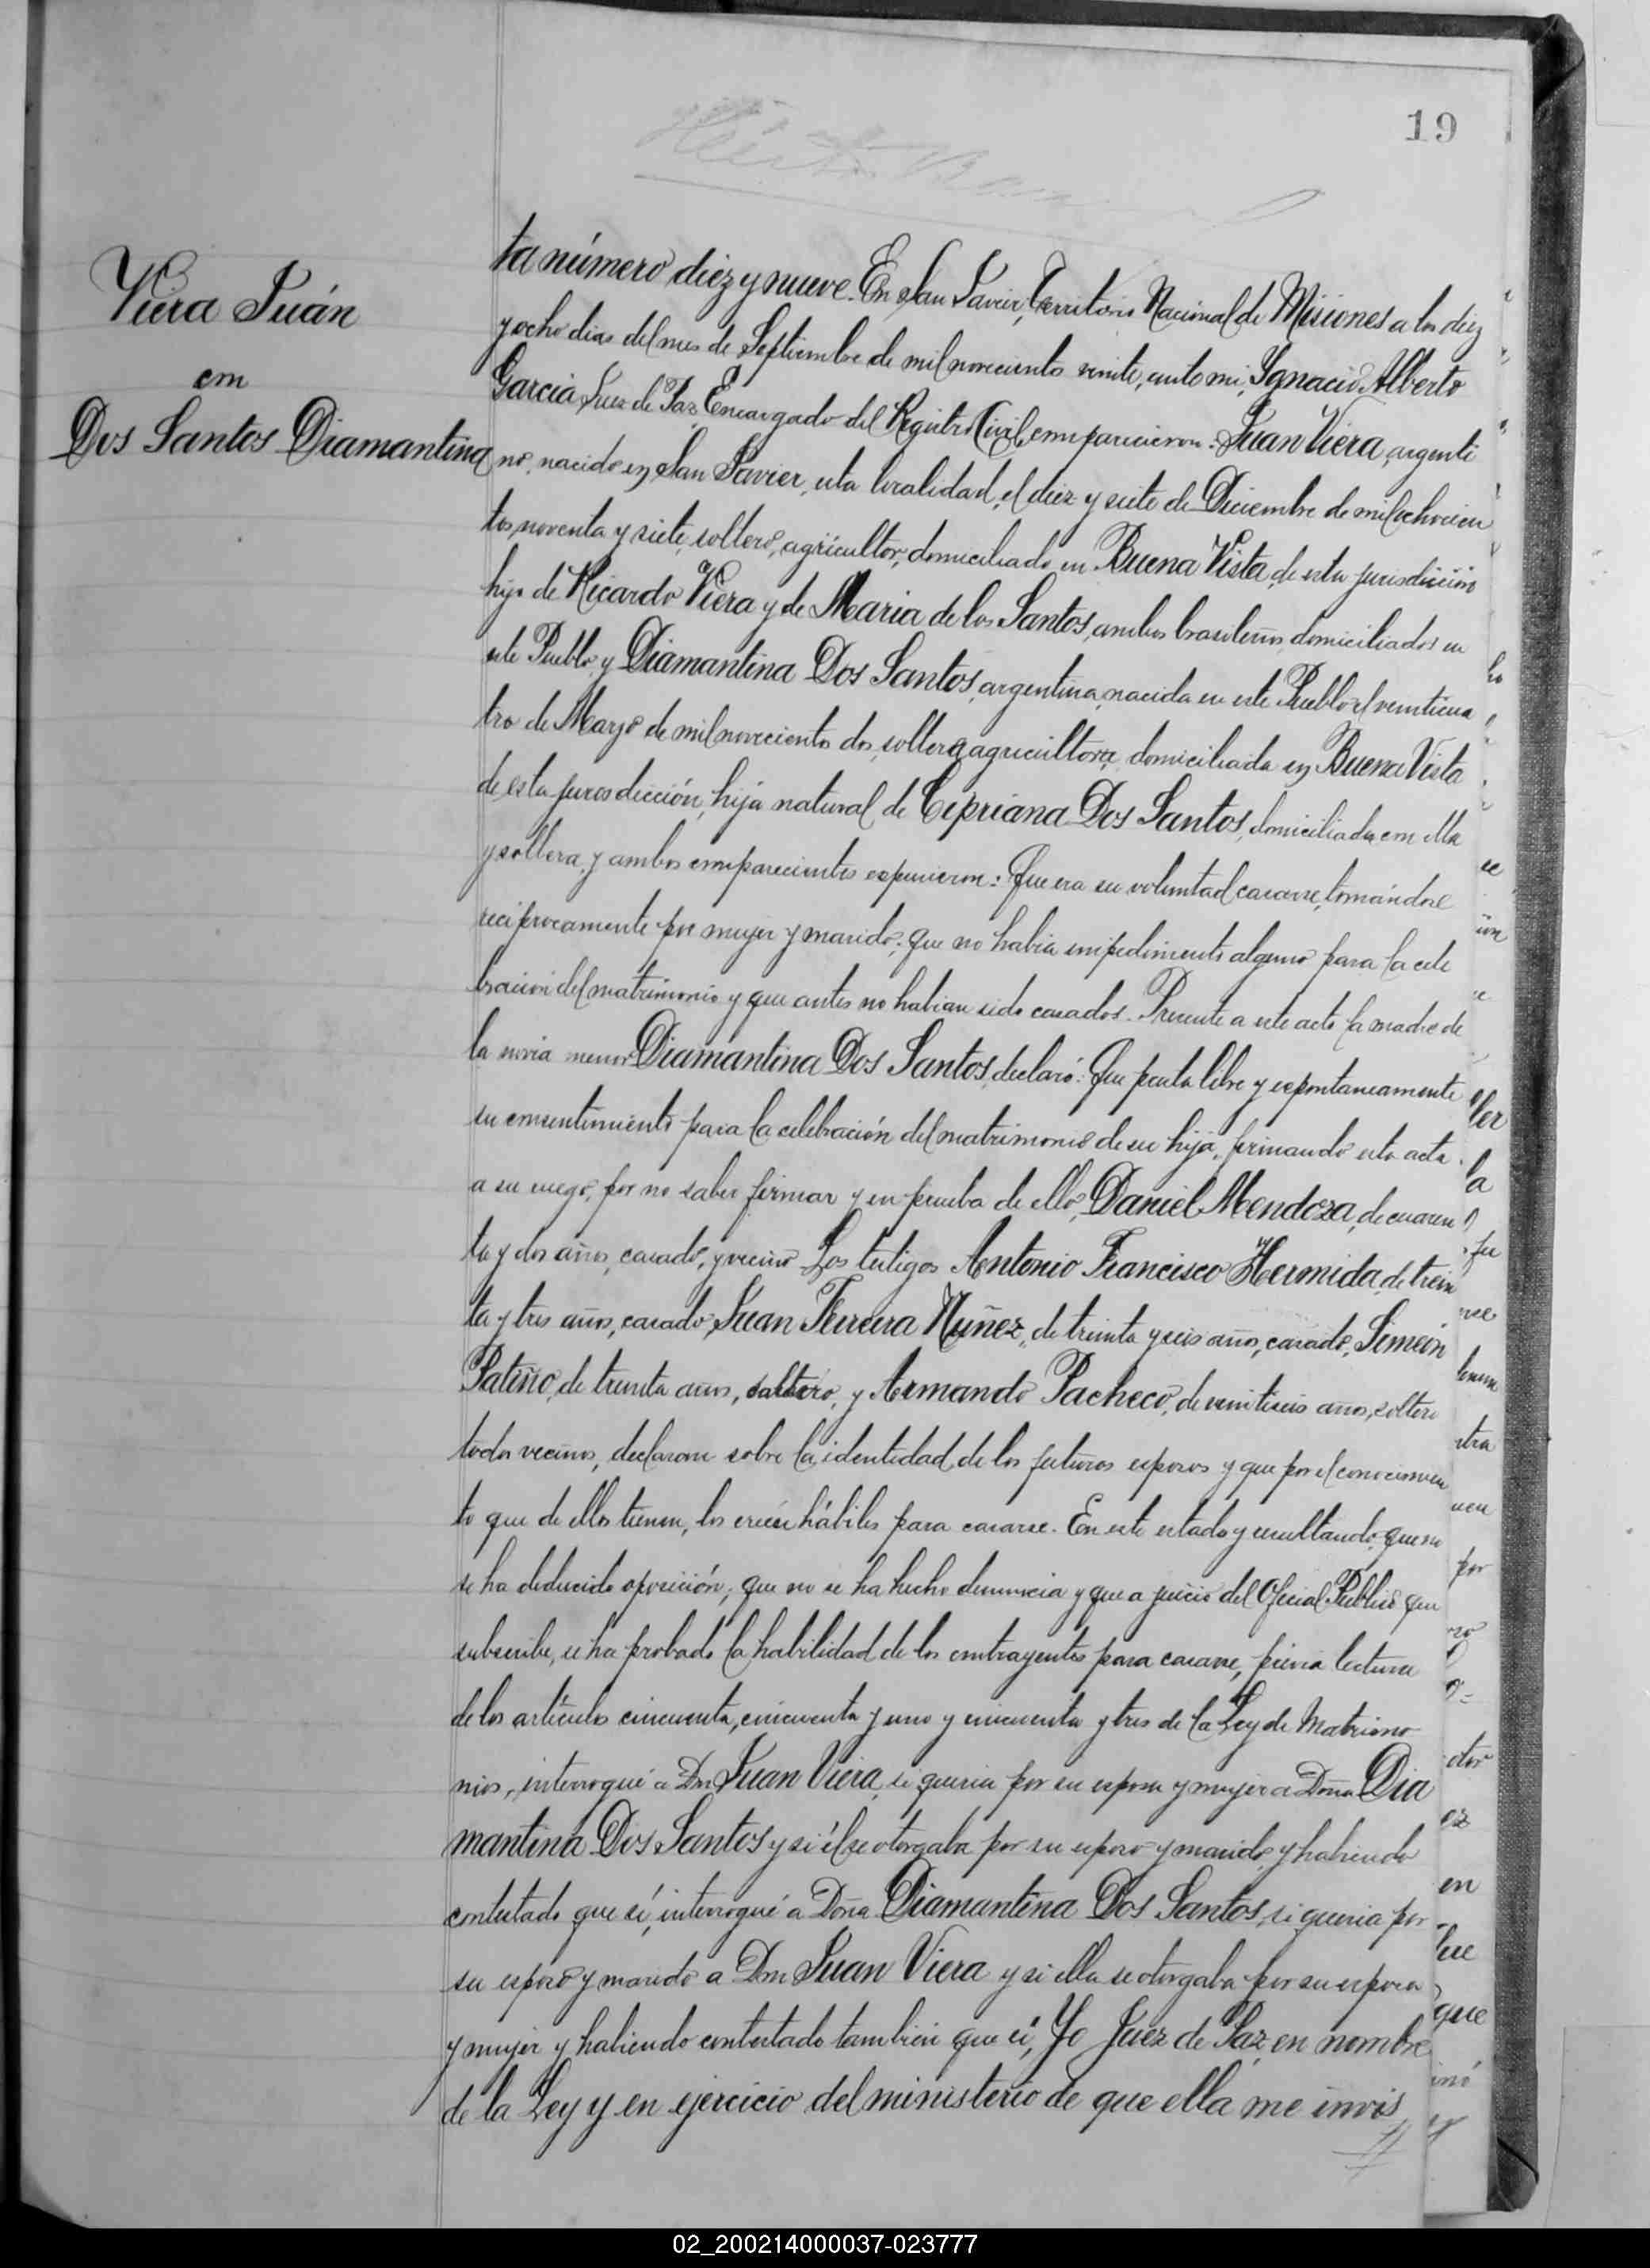 19
Viera Juán
con
Dos Santos Diamantina
ta número diez y nueve. En San Javier, Territorio Nacional de Misiones a los diez
y ocho dias del mes de Septiembre de mil novecientos veinte, ante mi, Ygnacio Alberto
Garcia Juez de Paz, Encargado del Registro Civil, comparecieron: Juan Viera, argenti
no, nacido en San Javier, esta localidad, el diez y siete de Diciembre de mil ochocien
tos noventa y siete, soltero, agricultor, domiciliado en Buena Vista, de esta jurisdicción
hijo de Ricardo Viera y de Maria de los Santos, ambos brasileños, domiciliados en
este Pueblo, y Diamantina Dos Santos, argentina, nacida en este Pueblo el veinticua
tro de Mayo de mil novecientos dos, soltera, agricultora, domiciliada en Buena Vista
de esta jurosdicción, hija natural de Cipriana Dos Santos, domiciliada con ella
y soltera, y ambos comparecientes espusieron: Que era su voluntad casarse, tomándose
reciprocamente por mujer y marido; que no habia impedimento alguno para la cele
bración del matrimonio y que antes no habian sido casados. Presente a este acto la madre de
la novia menor Diamantina Dos Santos, declaró: Que presta libre y espontaneamente
su consentimiento para la celebración del matrimonio de su hija, firmando esta acta
a su ruego, por no saber firmar y en prueba de ello, Daniel Mendoza, de cuaren
ta y dos años, casado, y vecino. Los testigos Antonio Francisco Hermida, de trein
ta y tres años, casado, Juan Ferreira Nuñez, de treinta y seis años, casado, Simeón
Patiño, de treinta años, soltero, y Armando Pacheco, de veintiseis años, soltero
todos vecinos, declaron sobre la identidad de los futuros esposos y que por el conocimien
to que de ellos tienen, los creén hábiles para casarse. En este estado y resultando que no
se ha deducido oposición, que no se ha hecho denuncia y que a juicio del Oficial Público que
subscribe, se ha probado la habilidad de los contrayentes para casarse, prévia lectura
de los artículos cincuenta, cincuenta y uno y cincuenta y tres de la Ley de Matrimo
nios, interrogué a Don Juan Viera, si queria por su esposa y mujer a Doña Dia
mantina Dos Santos y si él se otorgaba por su esposo y marido, y habiendo
contestado que sí, interrogué á Doña Diamantina Dos Santos, si queria por
su esposo y marido a Don Juan Viera y si ella se otorgaba por su esposa
y mujer y habiendo contestado también que sí, Yo Juez de Paz, en nombre
de la Ley y en ejercicio del ministerio de que ella me invis
02_200214000037-023777